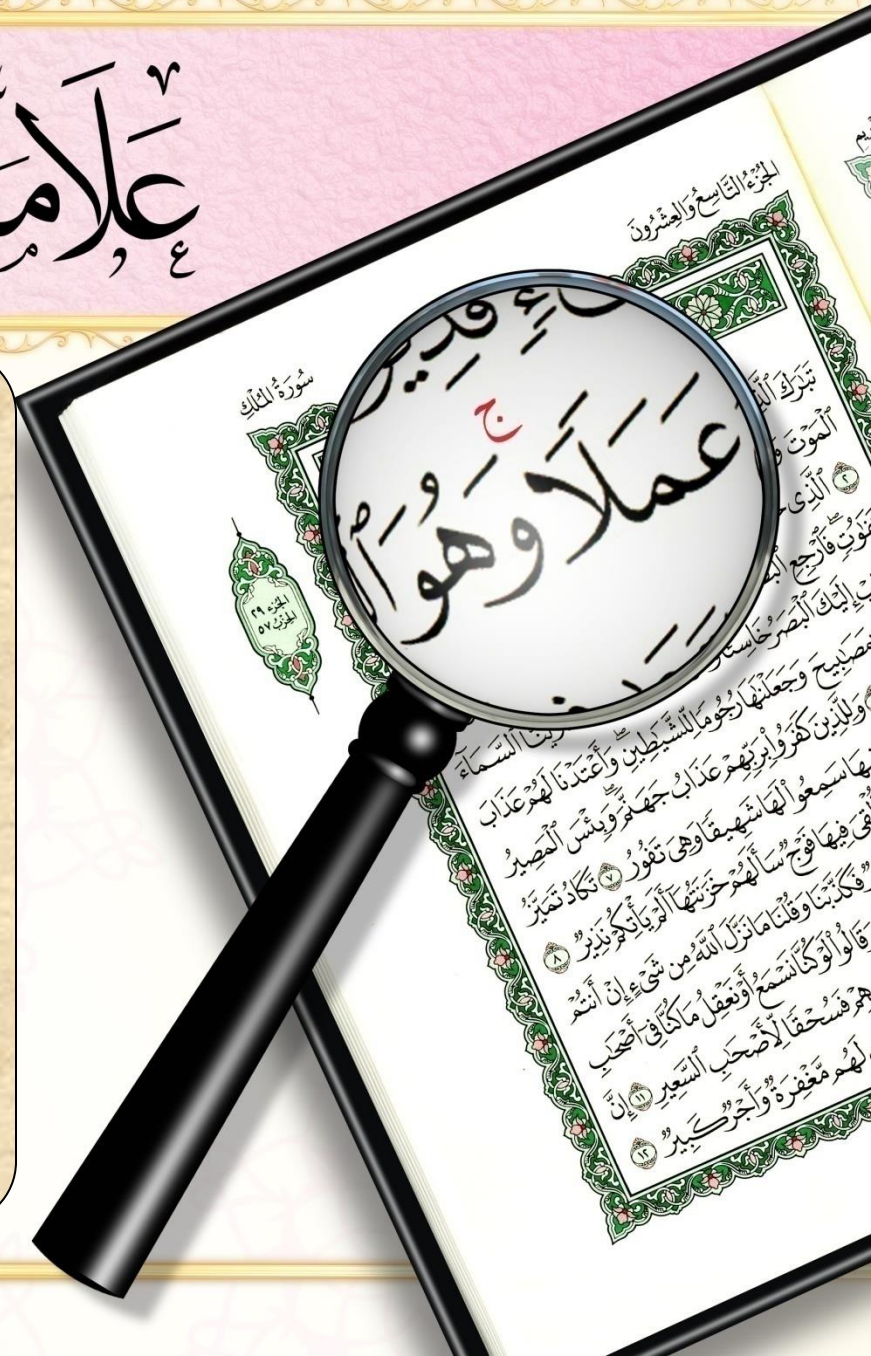 عَلَامَ
الجُزْءُ التَّاسِعُ وَالعِشْرُونَ
سُورَةُ المُلْكِ
الجزء ٢٩
الحزب ٥٧
قَدِيرٌ
عَمَلًا ۚ وَهُوَ
تَبَٰرَكَ
ٱلْمَوْتَ
٢ ٱلَّذِى
تَفَٰوُتٍ ۖ فَٱرْجِعِ
إِلَيْكَ ٱلْبَصَرُ خَاسِئًا
ٱلسَّمَآءَ
بِمَصَٰبِيحَ وَجَعَلْنَٰهَا رُجُومًا لِّلشَّيَٰطِينِ ۖ وَأَعْتَدْنَا لَهُمْ عَذَابَ
وَلِلَّذِينَ كَفَرُوا۟ بِرَبِّهِمْ عَذَابُ جَهَنَّمَ ۖ وَبِئْسَ ٱلْمَصِيرُ
سَمِعُوا۟ لَهَا شَهِيقًا وَهِىَ تَفُورُ ٧ تَكَادُ تَمَيَّزُ
فِيهَا فَوْجٌ سَأَلَهُمْ خَزَنَتُهَآ أَلَمْ يَأْتِكُمْ نَذِيرٌ ٨
فَكَذَّبْنَا وَقُلْنَا مَا نَزَّلَ ٱللَّهُ مِن شَىْءٍ إِنْ أَنتُمْ
وَقَالُوا۟ لَوْ كُنَّا نَسْمَعُ أَوْ نَعْقِلُ مَا كُنَّا فِىٓ أَصْحَٰبِ
فَسُحْقًا لِّأَصْحَٰبِ ٱلسَّعِيرِ ١١ إِنَّ
لَهُم مَّغْفِرَةٌ وَأَجْرٌ كَبِيرٌ ١٢